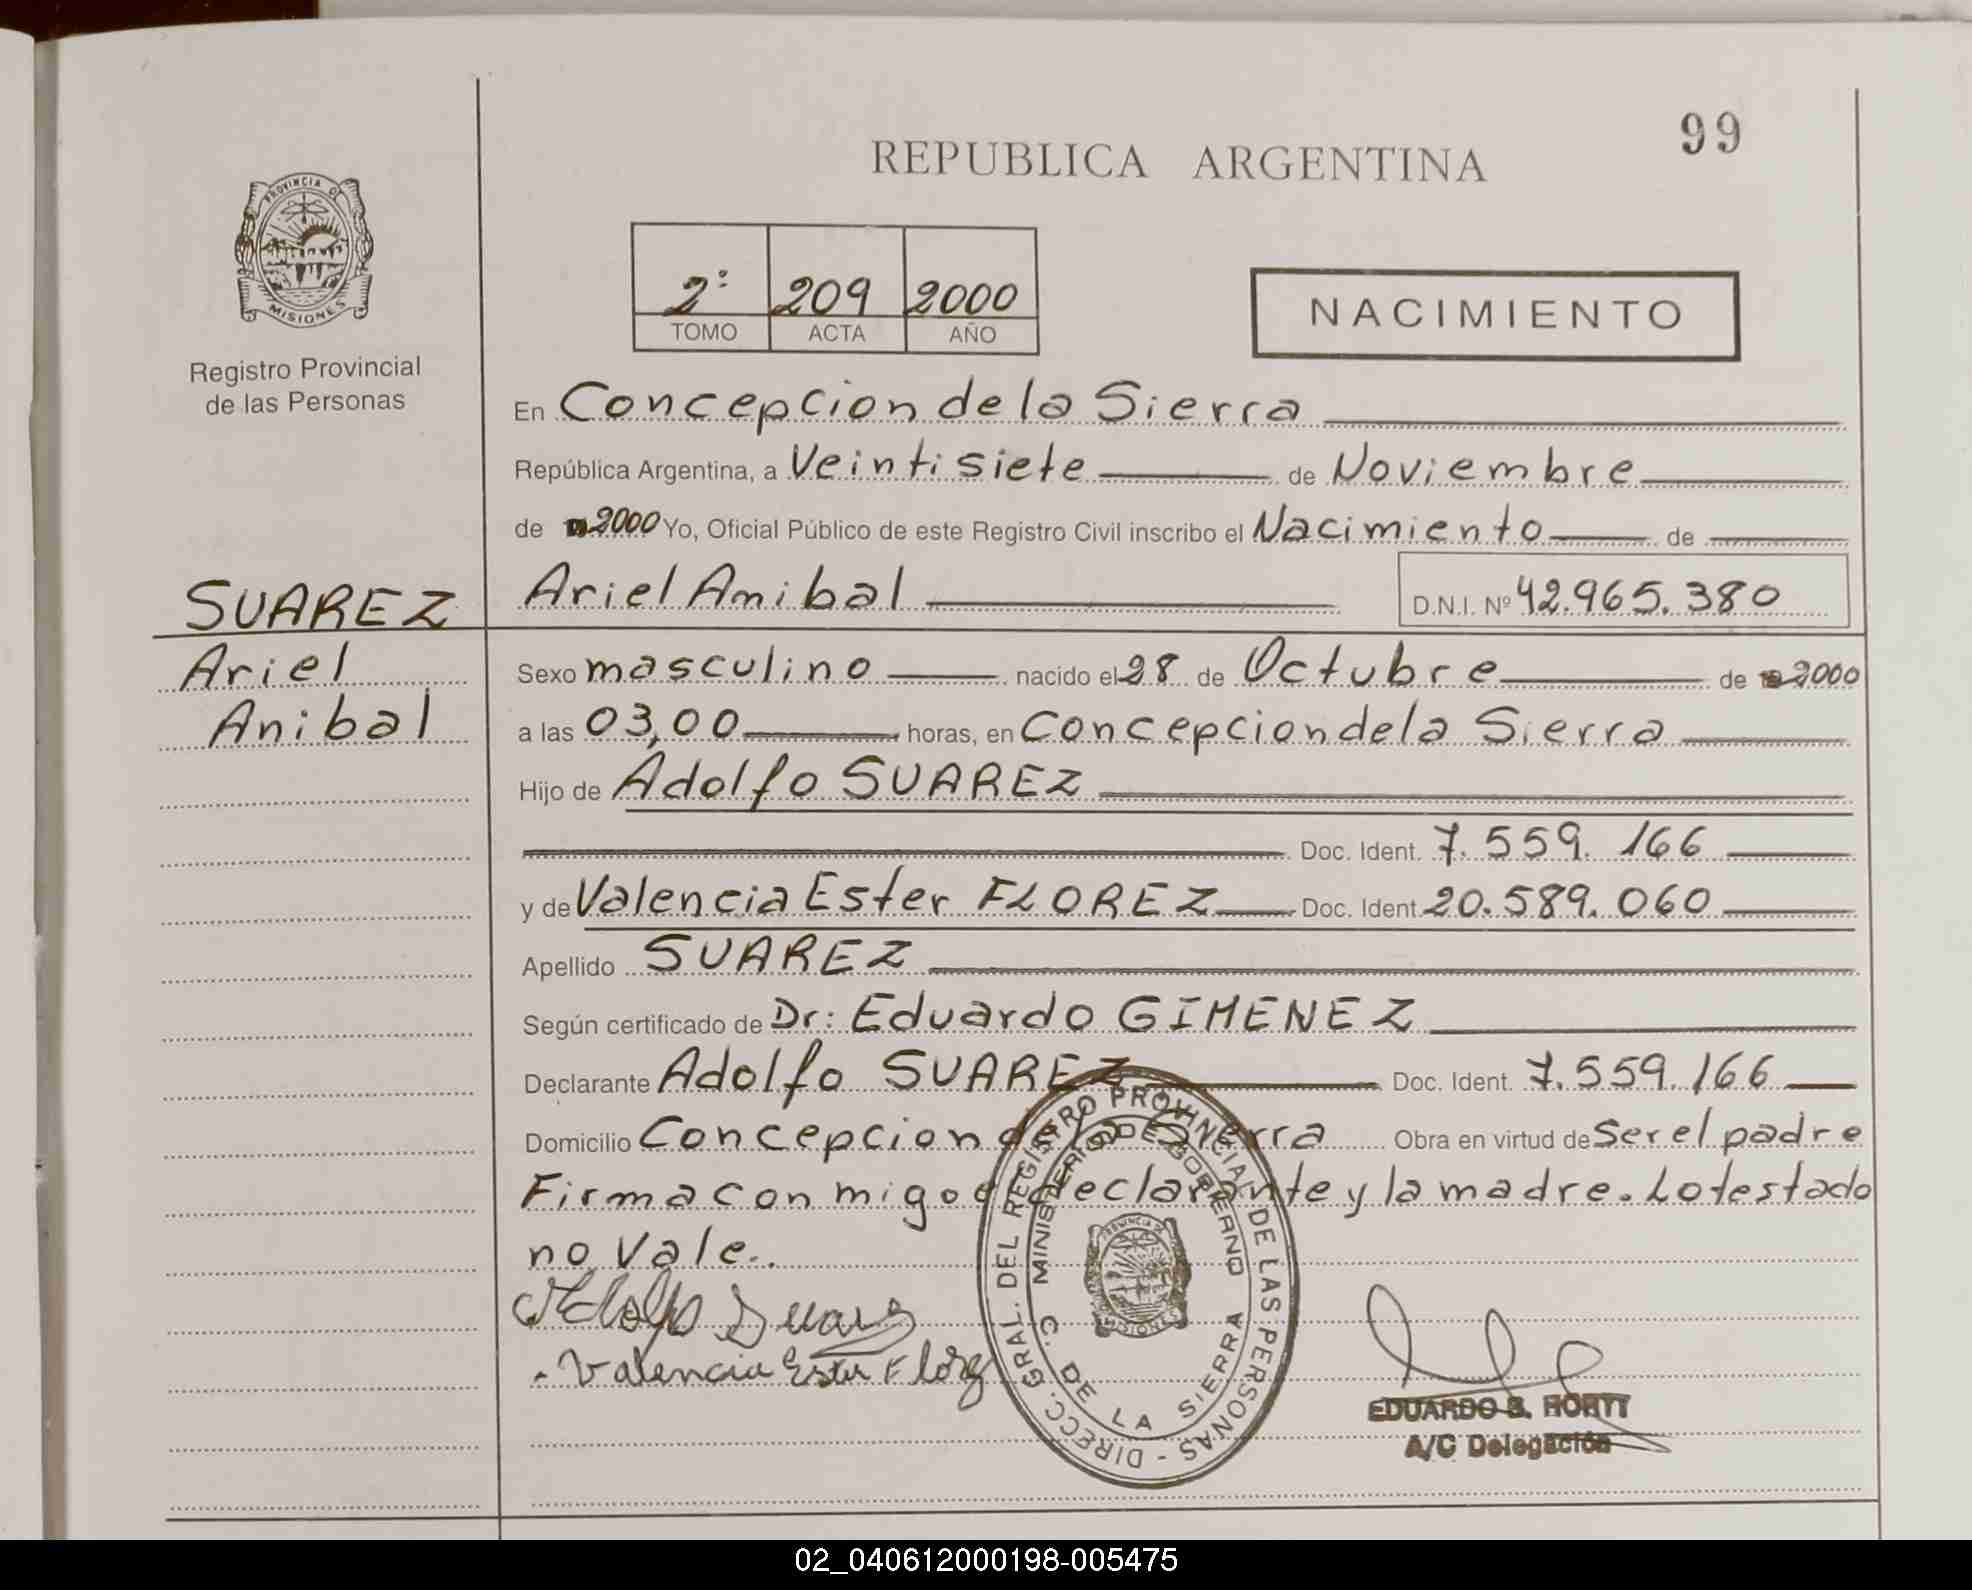 99
REPUBLICA ARGENTINA
PROVINCIA DE
MISIONES
Registro Provincial
de las Personas
2º 209 2000
TOMO ACTA AÑO
NACIMIENTO
En Concepcion de la Sierra
República Argentina, a Veintisiete de Noviembre
de 2000 Yo, Oficial Público de este Registro Civil inscribo el Nacimiento de
SUAREZ Ariel Anibal D.N.I. Nº 42.965.380
Ariel Sexo masculino nacido el 28 de Octubre de 2000
Anibal a las 03,00 horas, en Concepcion de la Sierra
Hijo de Adolfo SUAREZ
Doc. Ident. 7.559.166
y de Valencia Ester FLOREZ Doc. Ident. 20.589.060
Apellido SUAREZ
Según certificado de Dr: Eduardo GIMENEZ
Declarante Adolfo SUAREZ Doc. Ident. 7.559.166
Domicilio Concepcion de la Sierra Obra en virtud de Ser el padre
Firma con migo el declarante y la madre. Lo testado
no Vale..
Adolfo Suarez
Valencia Ester Florez
DIRECC. GRAL. DEL REGISTRO PROVINCIAL DE LAS PERSONAS -
MINISTERIO DE GOBIERNO
PROVINCIA DE
MISIONES
C. DE LA SIERRA
EDUARDO S. HORTT
A/C Delegación
02_040612000198-005475